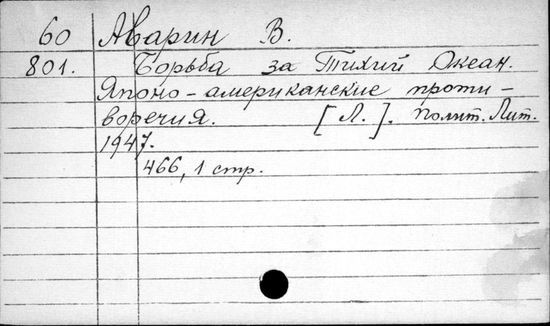 60 Аварин В.
801. Борьба за Тихий Океан.
Японо-американские проти-
воречия. [Л.]. полит. Лит.
1947.
466, 1 стр.